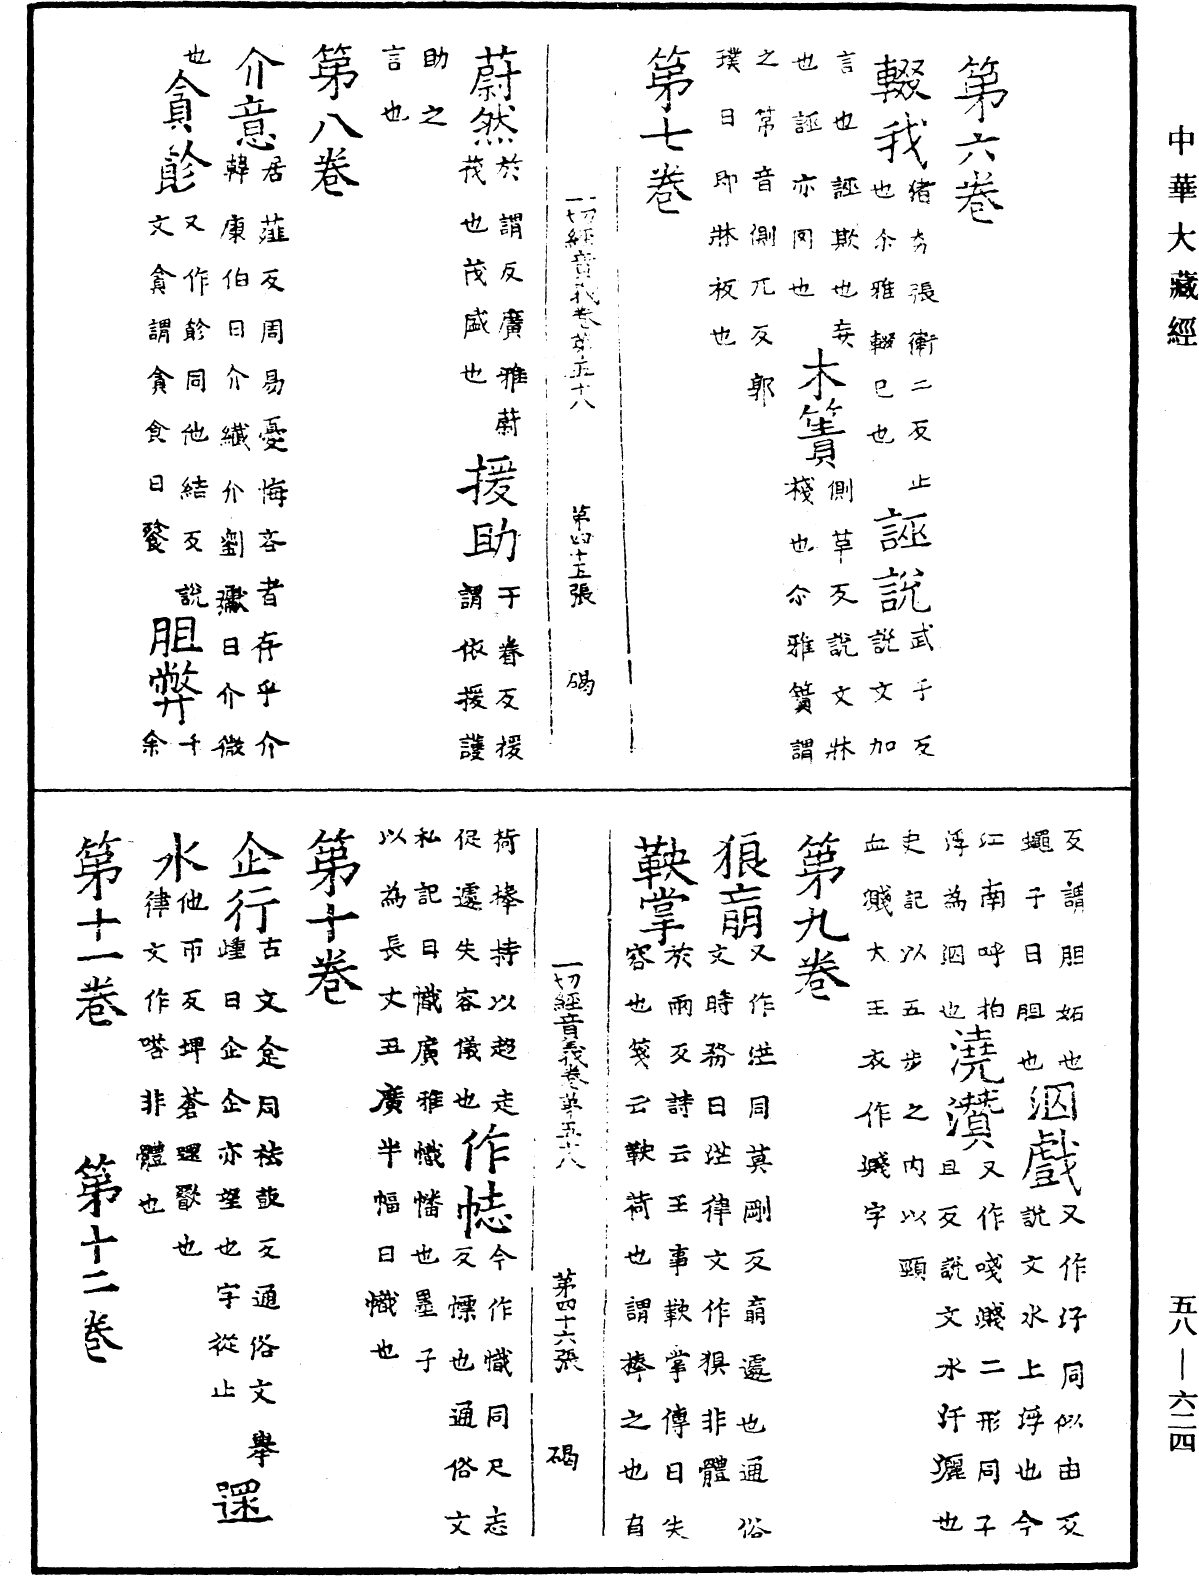 中華大藏經
第六卷
輟我 猪劣張衛二反止
也尒雅輟已也 誣説 武于反
説文加
言也誣欺也妄
也誣亦罔也 木簀 側草反説文牀
棧也尒雅簀謂
之笫音側兀反郭
璞曰即牀板也
第七卷
一切經音義卷第五十八 第四十五張 碣
蔚然 於謂反廣雅蔚
茂也茂盛也 援助 于眷反援
謂依援護
助之
言也
第八卷
介意 居薤反周易憂悔吝者存乎介
韓康伯曰介纖介劉瓛曰介微
也 貪飻 又作飻同他結反説
文貪謂貪食曰餮 胆弊 千
余
反謂胆妬也
蠅子曰胆也 泅戲 又作汓同似由反
説文水上浮也今
江南呼拍
浮為泅也 澆灒 又作濺濺二形同子
旦反説文水汙灑也
史記以五步之内以頸
血濺大王衣作濺字
第九卷
狼𦭘 又作茫同莫剛反𦭘遽也通俗
文時務曰茫律文作狽非體
鞅掌 於兩反詩云王事鞅掌傳曰失
容也箋云鞅荷也謂捧之也自
一切經音義卷第五十八 第四十六張 碣
荷捧持以趍走
促遽失容儀也 作㤅 今作幟同尺志
反幖也通俗文
私記曰幟廣雅幟幡也墨子
以為長丈五廣半幅曰幟也
第十卷
企行 古文𠈮同袪豉反通俗文舉
踵曰企企亦望也字從止 𨗴
水 他帀反埤蒼𨗴歠也
律文作嗒非體也
第十一卷 第十二卷
五八—六二四